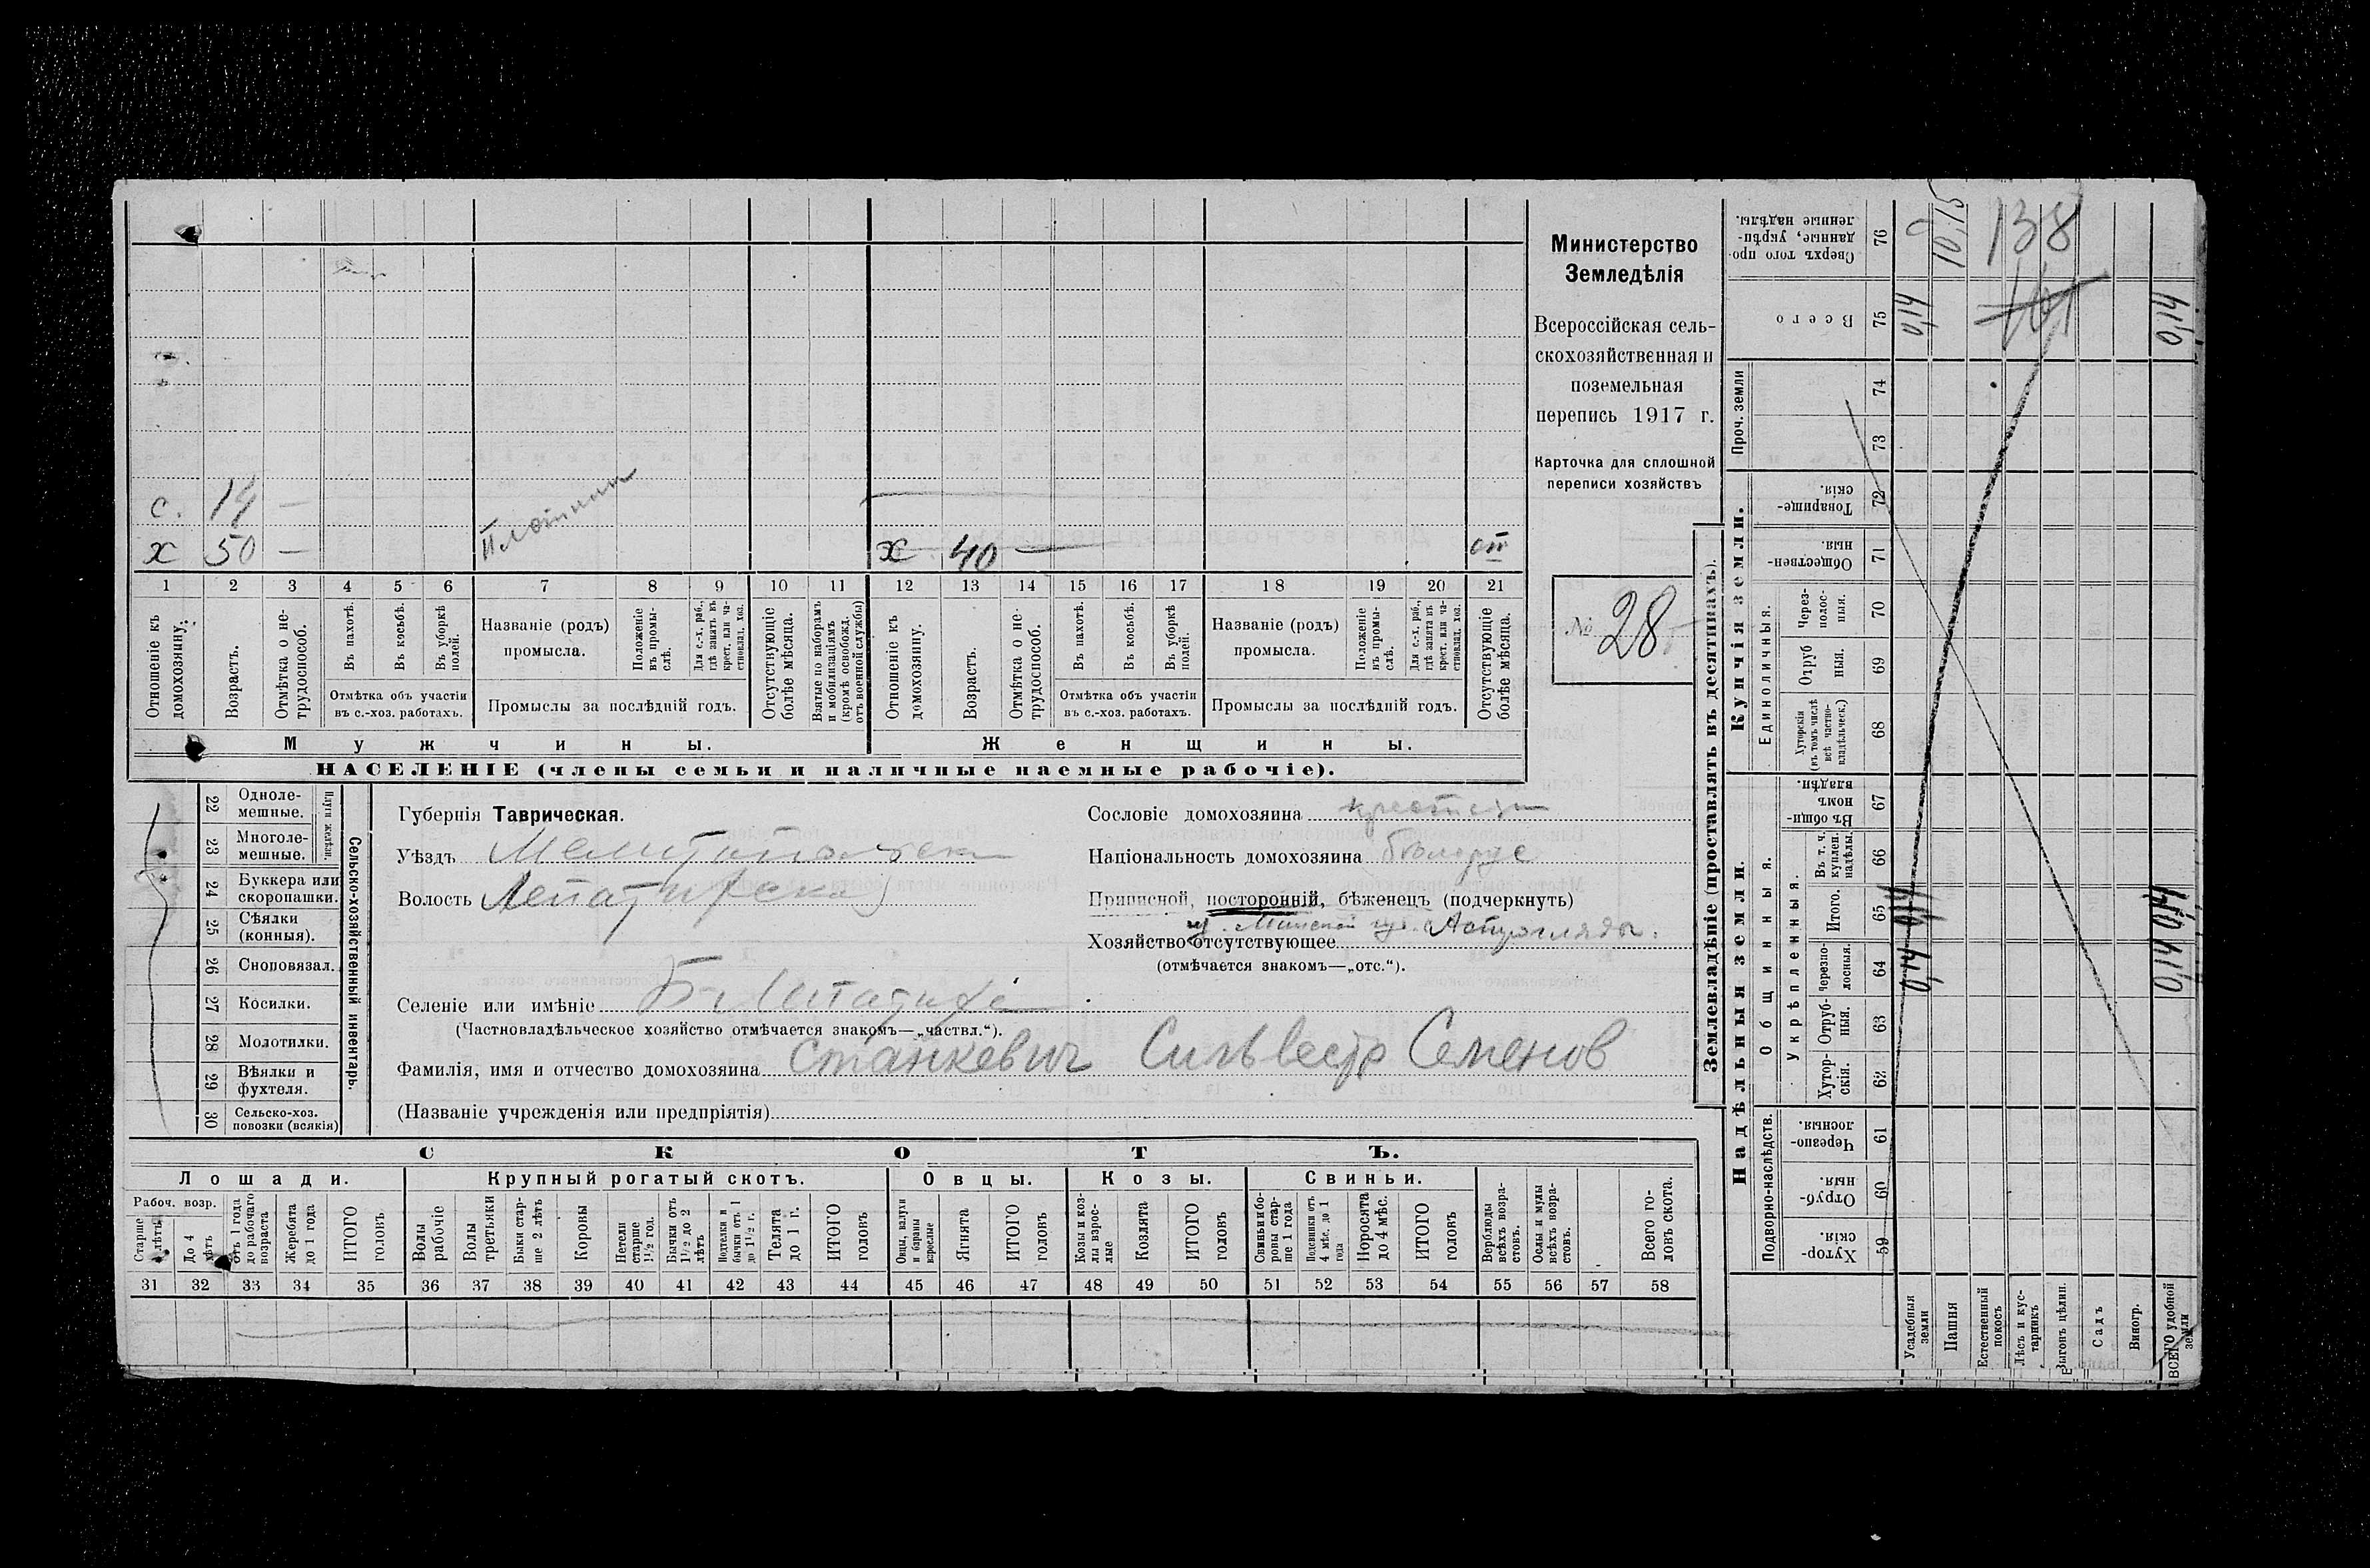 с. 14 —
х 50 — Плотник х. 40 —
1 2 3 4 5 6 7 8 9 10 11 12 13 14 15 16 17 18 19 20 21
Отношеніе къ домохозяину.
Возрастъ.
Отмѣтка о нетрудоспособ.
Въ пахотѣ.
Въ косьбѣ.
Въ уборкѣ полей.
Отмѣтка объ участіи
въ с.-хоз. работахъ.
Названіе (родъ)
промысла.
Положеніе въ промыслѣ.
Для с.-х. раб., гдѣ занятъ въ крест. или частновлад. хоз.
Промыслы за послѣдній годъ.
Отсутствующіе болѣе мѣсяца.
Взятые по наборамъ и мобилизаціямъ (кромѣ освобожд. отъ военной службы)
Отношеніе къ домохозяину.
Возрастъ.
Отмѣтка о нетрудоспособ.
Въ пахотѣ.
Въ косьбѣ.
Въ уборкѣ полей.
Отмѣтка объ участіи
въ с.-хоз. работахъ.
Названіе (родъ)
промысла.
Положеніе въ промыслѣ.
Для с.-х. раб., гдѣ занята въ крест. или частновлад. хоз.
Промыслы за послѣдній годъ.
Отсутствующіе болѣе мѣсяца.
Мужчины.
Женщины.
НАСЕЛЕНІЕ (члены семьи и наличные наемные рабочіе).
Министерство
Земледѣлія
Всероссійская сель-
скохозяйственная и
поземельная
перепись 1917 г.
Карточка для сплошной
переписи хозяйствъ
№ 28
22 Однолемешные.
23 Многолемешные.
Плуги желѣзн.
24 Буккера или скоропашки.
25 Сѣялки (конныя).
26 Сноповязал.
27 Косилки.
28 Молотилки.
29 Вѣялки и фухтеля.
30 Сельско-хоз. повозки (всякія)
Сельско-хозяйственный инвентарь.
Губернія Таврическая.
Уѣздъ Мелитопольск
Волость
Селеніе или имѣніе
(Частновладѣльческое хозяйство отмѣчается знакомъ—„частвл.“).
Фамилія, имя и отчество домохозяина Станкевич Сильвестр Семенов
(Названіе учрежденія или предпріятія)
Сословіе домохозяина крестьян
Національность домохозяина бѣлорус
Приписной, посторонній, бѣженецъ (подчеркнуть)
Минской губ.
Хозяйство отсутствующее
(отмѣчается знакомъ—„отс.“).
СКОТЪ.
Лошади.
Крупный рогатый скотъ.
Овцы.
Козы.
Свиньи.
Рабоч. возр.
Старше 4 лѣтъ
До 4 лѣтъ
Отъ 1 года до рабочаго возраста
Жеребята до 1 года
ИТОГО головъ
Волы рабочіе
Волы третьяки
Быки старше 2 лѣтъ
Коровы
Нетели старше 1½ год.
Бычки отъ 1½ до 2 лѣтъ
Подтелки и бычки отъ 1 до 1½ г.
Телята до 1 г.
ИТОГО головъ
Овцы, валухи и бараны взрослые
Ягнята
ИТОГО головъ
Козы и козлы взрослые
Козлята
ИТОГО головъ
Свиньи и бороны старше 1 года
Подсвинки отъ 4 мѣс. до 1 года
Поросята до 4 мѣс.
ИТОГО головъ
Верблюды всѣхъ возрастовъ.
Ослы и мулы всѣхъ возрастовъ.
Всего головъ скота.
31 32 33 34 35 36 37 38 39 40 41 42 43 44 45 46 47 48 49 50 51 52 53 54 55 56 57 58
Землевладѣніе (проставлять въ десятинахъ).
Надѣльныя земли.
Купчія земли.
Проч. земли
Подворно-наслѣдств.
Общинныя.
Укрѣпленныя.
Единоличныя.
Хуторскія. 59
Отрубныя. 60
Черезполосныя. 61
Хуторскія. 62
Отрубныя. 63
Черезполосныя. 64
Итого. 65
Въ т. ч. куплен. надѣлы. 66
Въ общинномъ владѣн. 67
Хуторскія (въ томъ числѣ всѣ частновладѣльческ.) 68
Отрубныя. 69
Черезполосныя. 70
Общественныя. 71
Товарищескія. 72
73
74
Всего 75
Сверхъ того проданные, укрѣпленные надѣлы. 76
Усадебныя земли 0,14 0,14 0,14
Пашня 10,15
Естественный покосъ
Лѣсъ и кустарникъ
Выгонъ цѣлин.
Садъ
Виногр.
ВСЕГО удобной земли 0,14 0,14 0,14
138